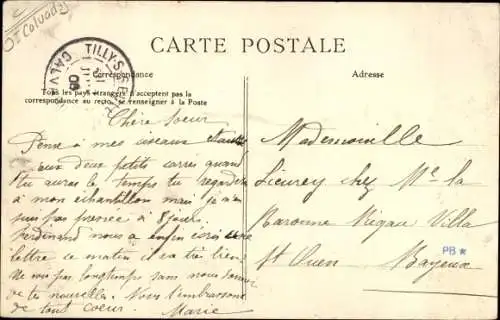 Dt Calvados
CARTE POSTALE
TILLY-S-SEULLES
CALVADOS
Correspondance
Adresse
Tous les pays étrangers n'acceptent pas la
correspondance au recto, se renseigner à la Poste
Chère Soeur
Pense à mes ciseaux
aux deux petits carrés quand
tu auras le temps tu regardera
à mon échantillon mais je n'en
suis pas pressée à 8 jours.
Ferdinand nous a enfin écris une
lettre ce matin il va très bien
Ne sois pas longtemps sans nous donner
de tes nouvelles. Nous t'embrassons
de tout coeur. Marie
Mademoiselle
Lieurey chez Me la
Baronne Rigau Villa
St Ouen Bayeux
PB *